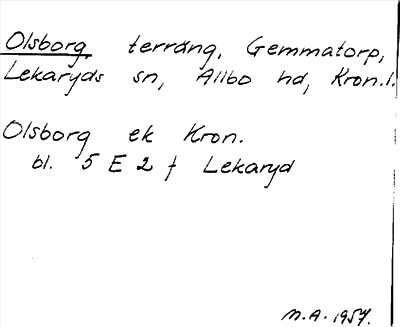 Olsborg, terräng, Gemmatorp,
Lekaryds sn, Allbo hd, Kron.l.
Olsborg ek Kron.
bl. 5 E 2 f Lekaryd
M.A. 1957.